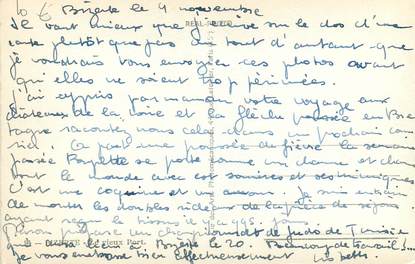 Bizerte le 4 novembre
Il vaut mieux que j'écrive sur le dos d'une
carte plutôt que pas du tout d'autant que
je voudrais vous envoyer ces photos avant
qu'elles ne soient trop périmées.
J'ai appris par maman votre voyage aux
châteaux de la Loire et la flèche poussée en Bre
tagne racontez nous cela dans un prochain cour
rier. A part une poussée de fièvre la semaine
passée Babette se porte comme un charme et charme
tout le monde avec ses sourires et ses mimiques
C'est une coquine et un amour. Je suis en train
de monter les doubles rideaux de la pièce de séjour
ayant reçu le tissus il y a qqs. jours.
prépare un championnat de Judo de Tunisie
Bizerte le 20. Beaucoup de travail!...
Je vous embrasse bien affectueusement